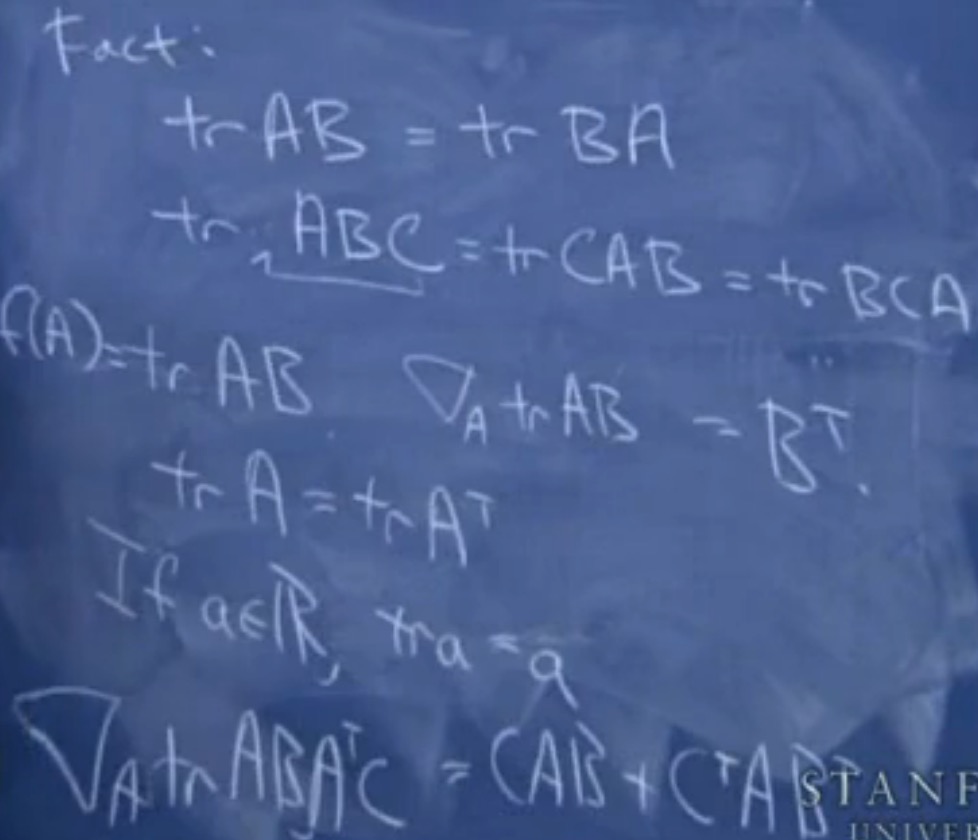 Fact:
tr AB = tr BA
tr ABC = tr CAB = tr BCA
f(A) = tr AB ∇_A tr AB = Bᵀ.
tr A = tr Aᵀ
If a∈ℝ, tr a = a
∇_A tr ABAᵀC = CAB + CᵀABᵀ
STANF
UNIVER